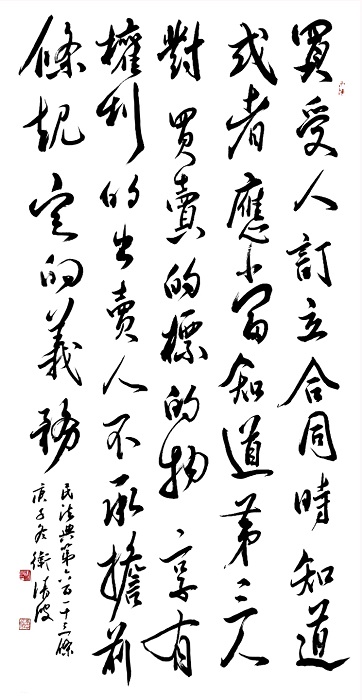 買受人訂立合同時知道
或者應當知道第三人
對買賣的標的物享有
權利的出賣人不承擔前
條規定的義務
民法典第六百一十三條
庚子冬衛